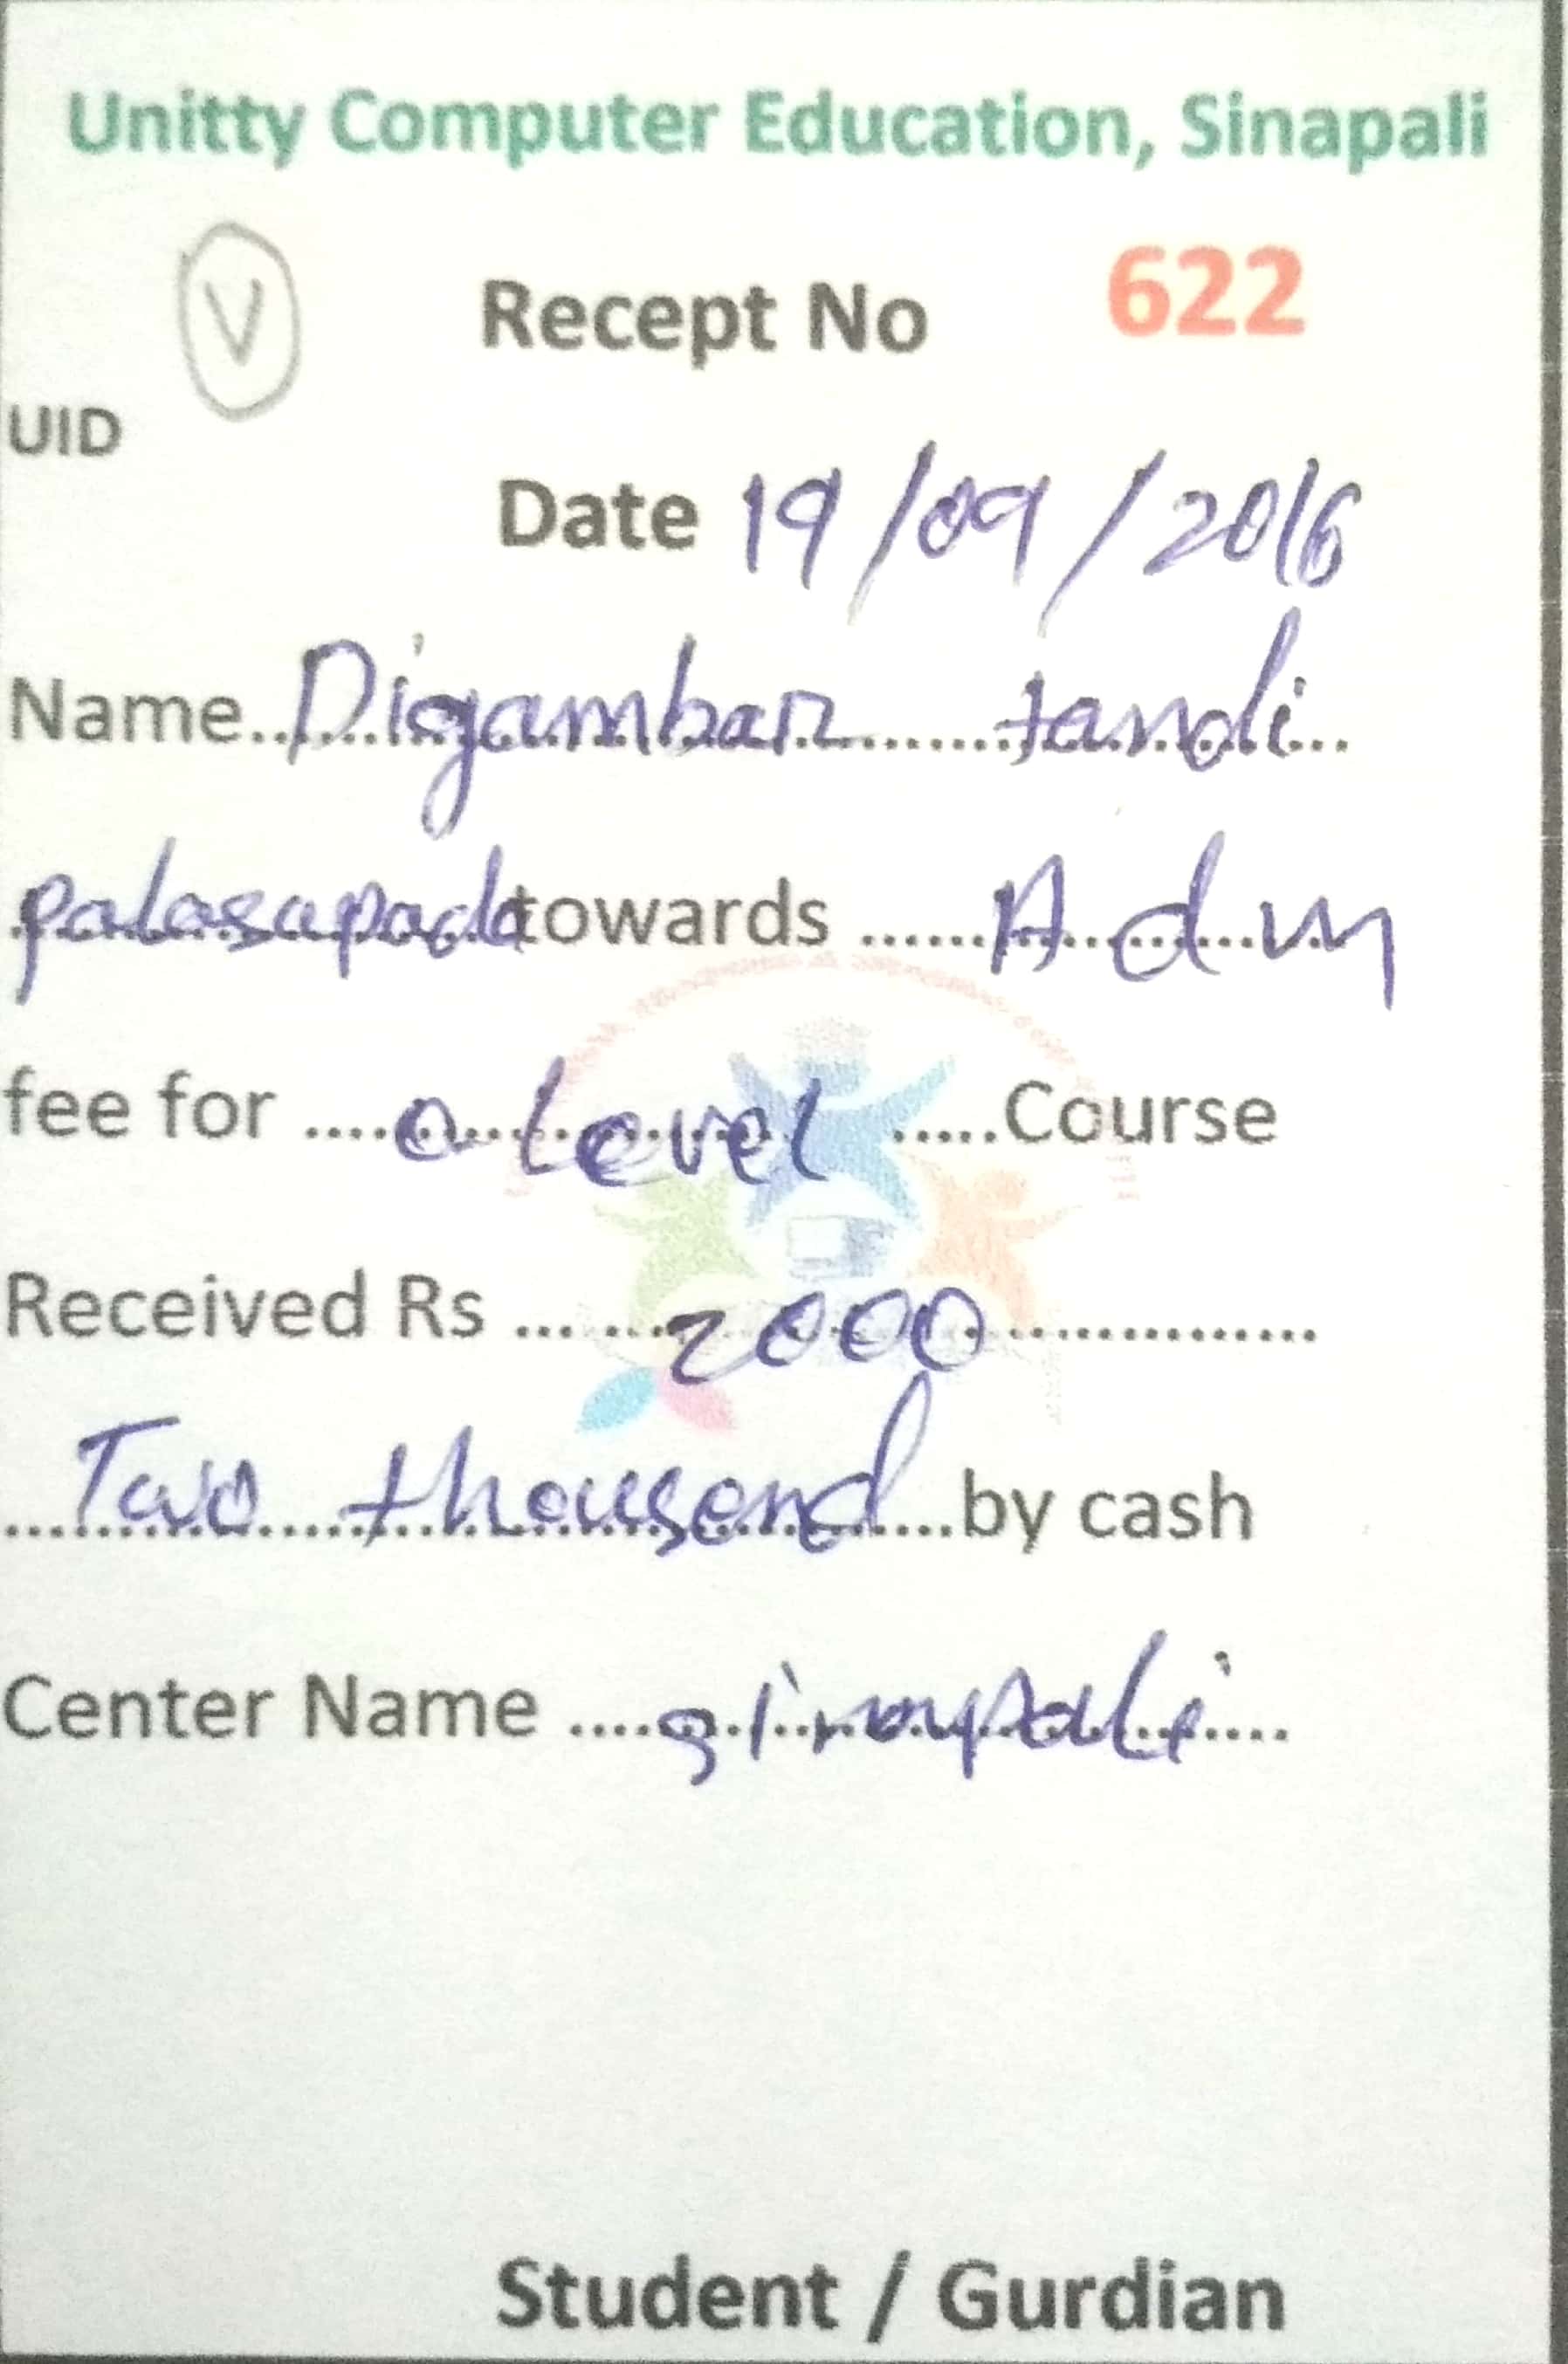 Unitty Computer Education, Sinapali
V
Recept No 622
UID
Date 19/09/2016
Name Digambar tandi
palasapada towards Adm
fee for o level Course
Received Rs 2000
Two thousand by cash
Center Name sinapali
Student / Gurdian